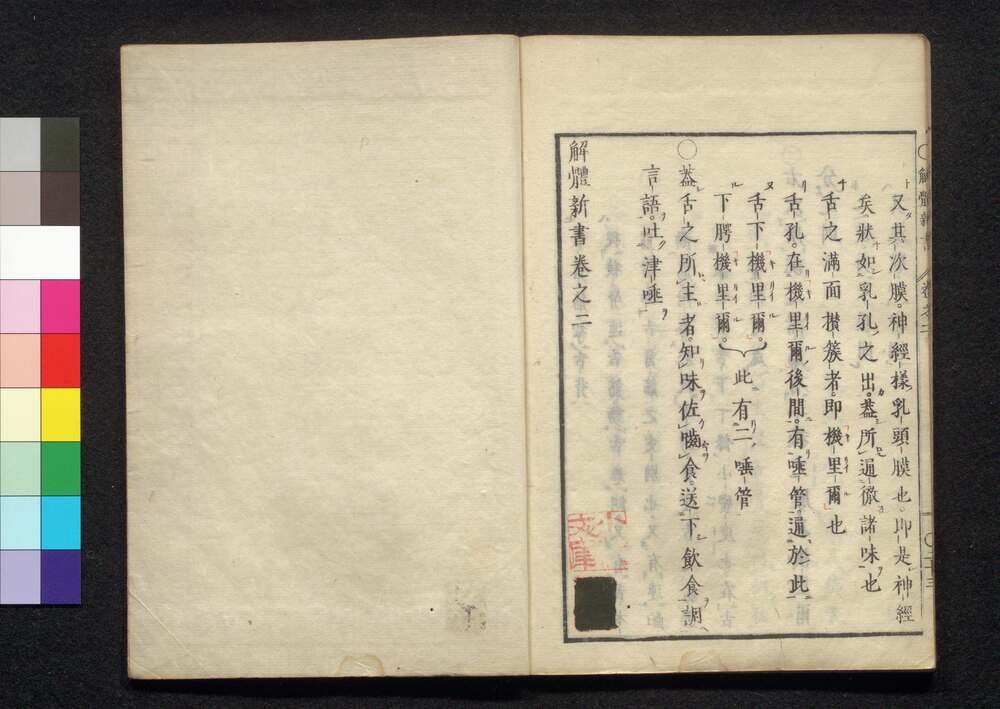 又其次膜。神經様乳頭膜也。即是神經
矣。狀如乳孔之出。蓋所通徹諸味也
舌之滿面攅簇者。即機里爾也
舌孔。在機里爾後間。有唾管。通於此
舌下機里爾。
下腭機里爾。此有二唾管
〇蓋舌之所主者。知味佐嚙食。送下飲食。調
言語。吐津唾
解體新書卷之二